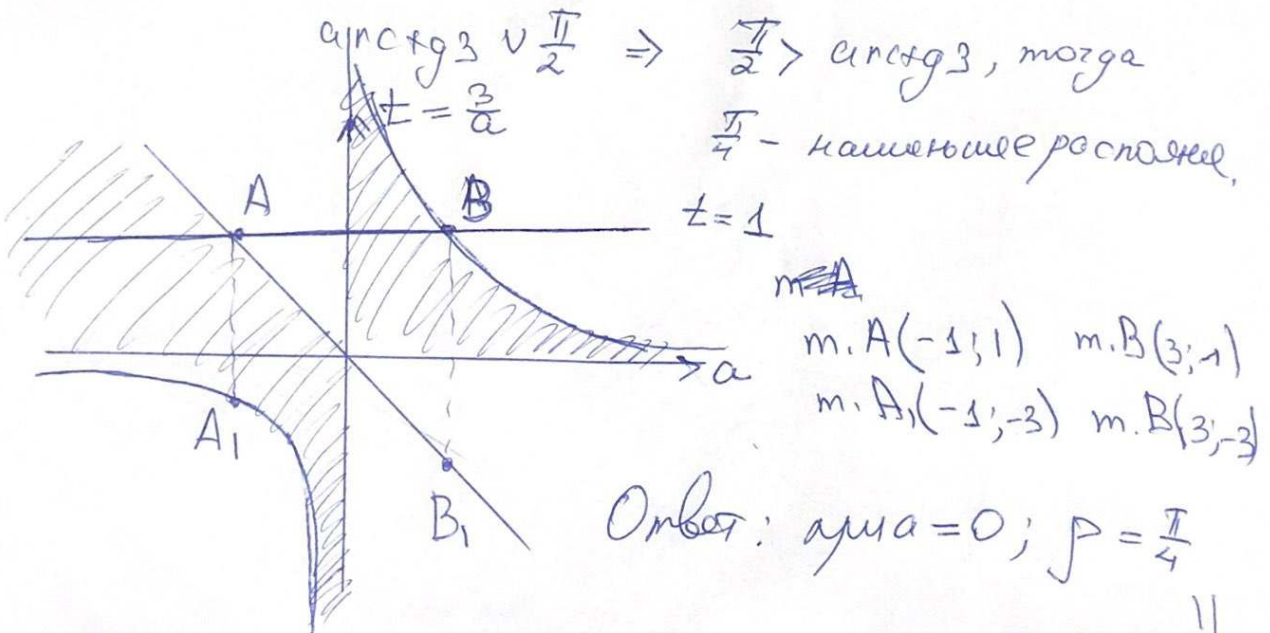 arctg 3 ∨ π/2 ⇒ π/2 > arctg 3, тогда
t = 3/a
π/4 - наименьшее расстояние.
A B
t = 1
т. A(-1; 1) т. B(3; 1)
a
т. A₁(-1; -3) т. B(3; -3)
A₁
B₁
Ответ: при a = 0; ρ = π/4